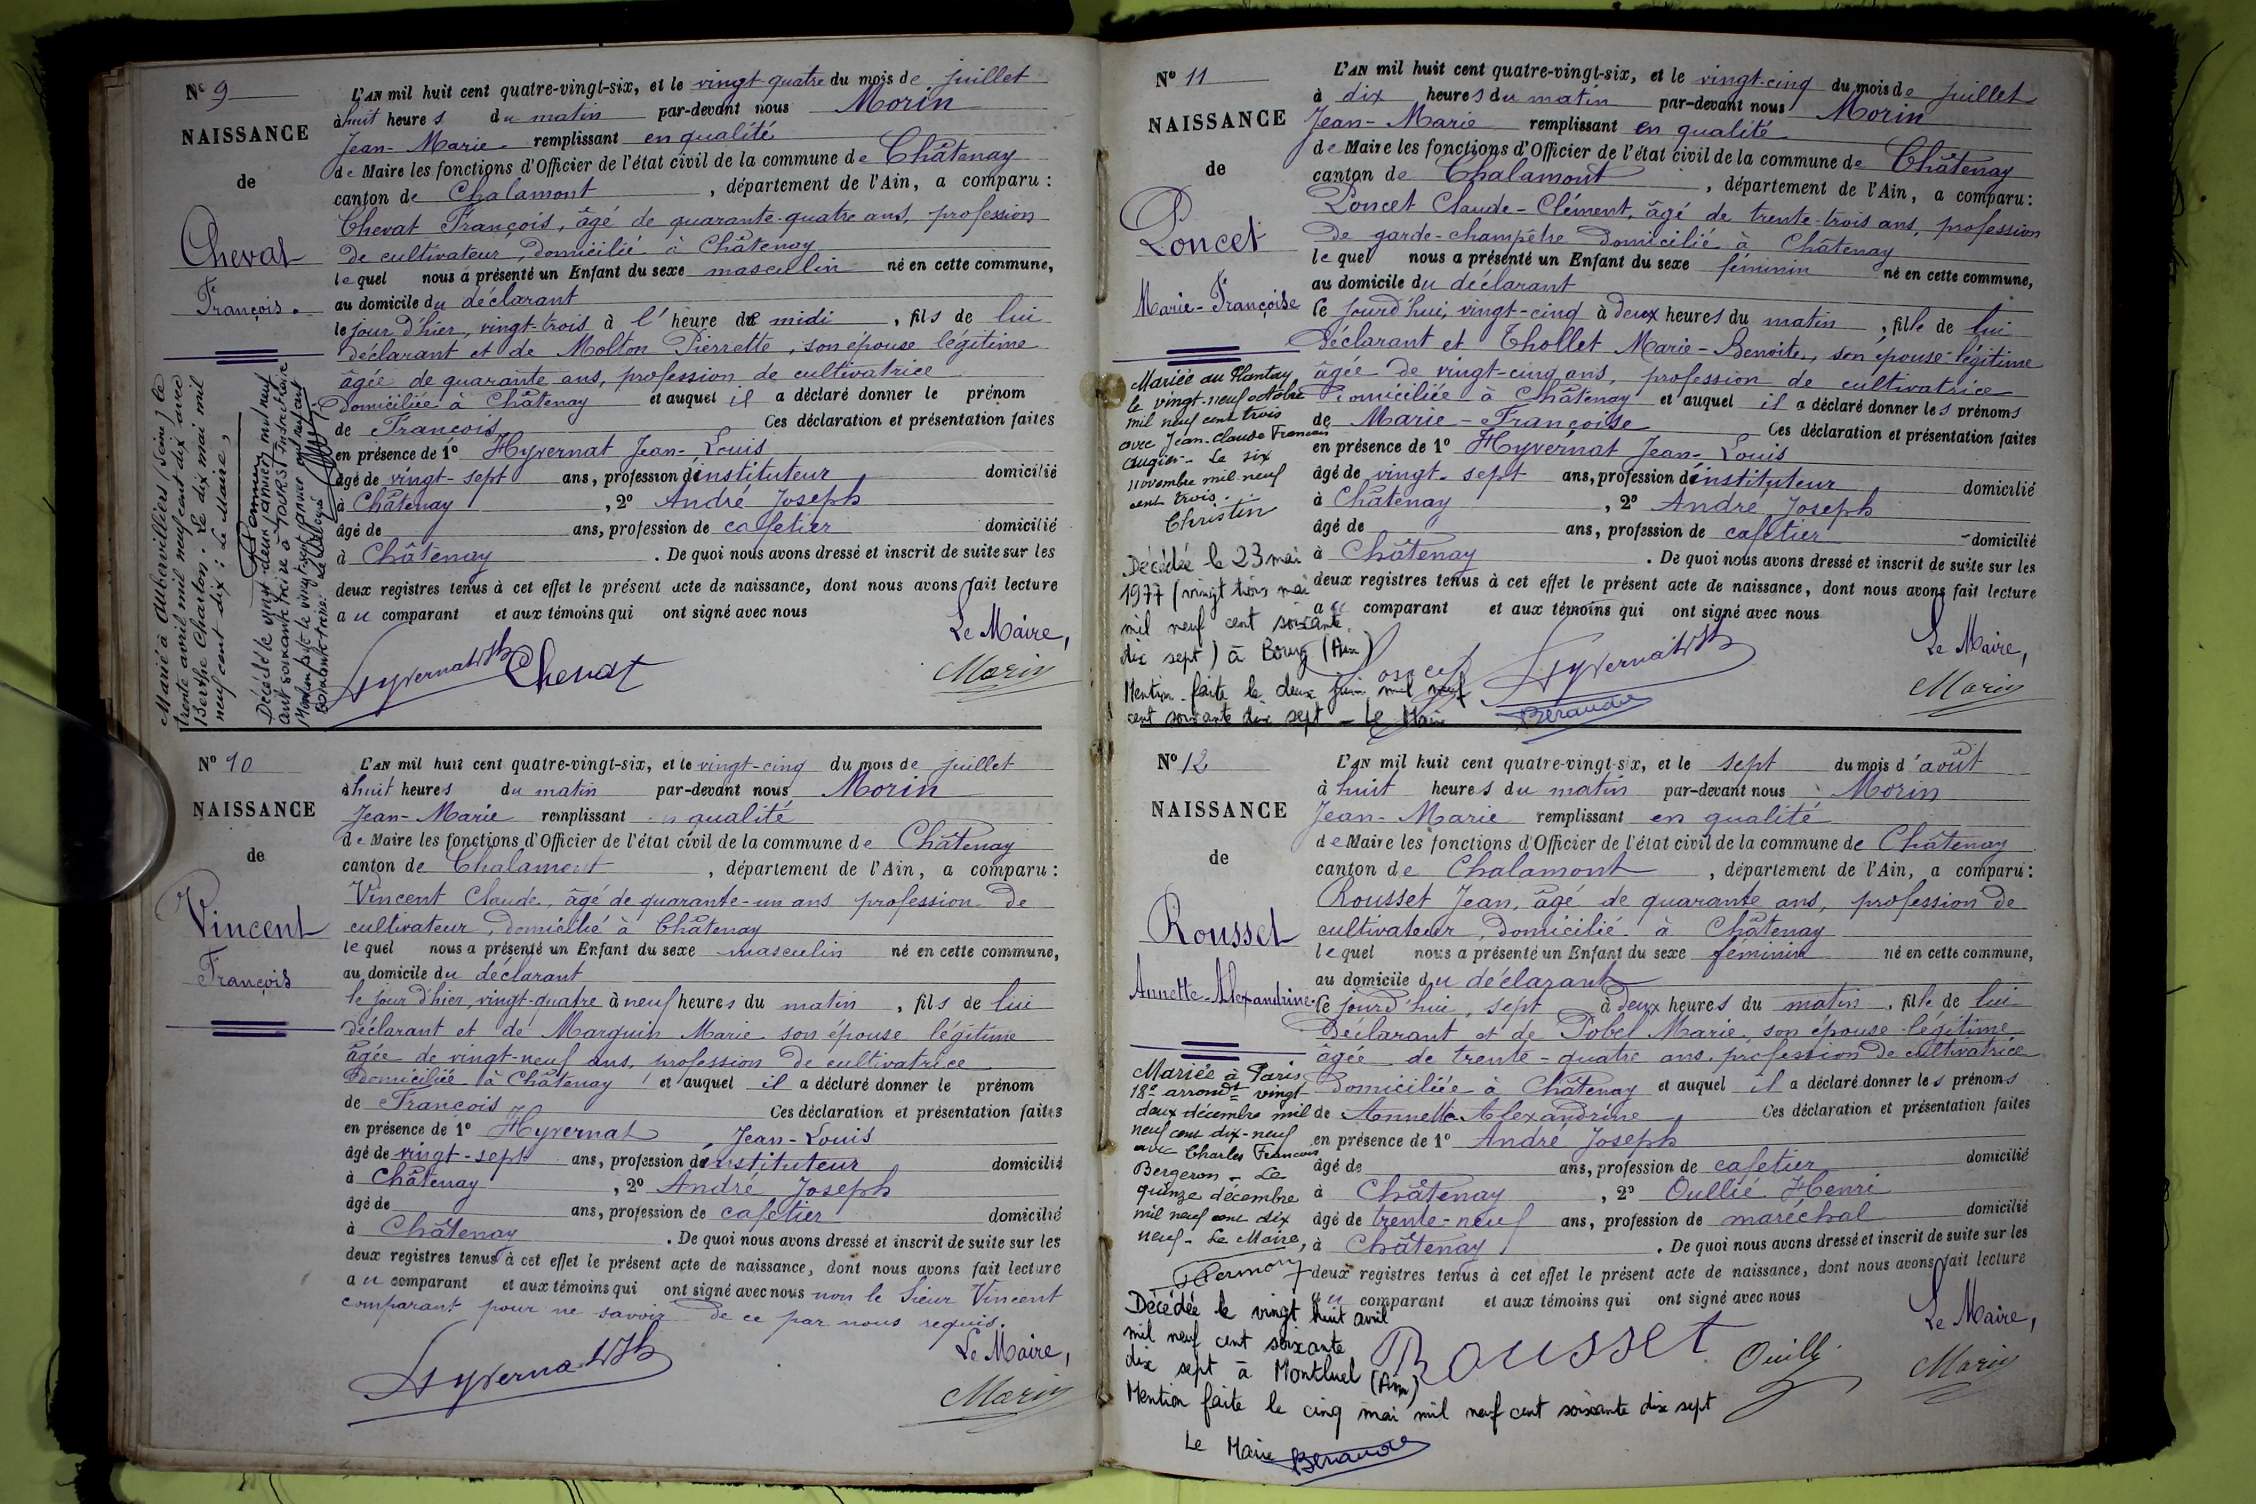 Nº 9
NAISSANCE
de
Chevat
François.
L'AN mil huit cent quatre-vingt-six, et le vingt-quatre du mois de juillet
à huit heures du matin par-devant nous Morin
Jean-Marie remplissant en qualité
de Maire les fonctions d'Officier de l'état civil de la commune de Châtenay
canton de Chalamont, département de l'Ain, a comparu :
Chevat François, âgé de quarante-quatre ans, profession
de cultivateur, domicilié à Châtenay
lequel nous a présenté un Enfant du sexe masculin né en cette commune,
au domicile du déclarant
le jour d'hier, vingt-trois à l'heure de midi, fils de lui
déclarant et de Molton Pierrette, son épouse légitime
âgée de quarante ans, profession de cultivatrice
domiciliée à Châtenay et auquel il a déclaré donner le prénom
de François Ces déclaration et présentation faites
en présence de 1º Hyvernat Jean-Louis
âgé de vingt-sept ans, profession d'instituteur domicilié
à Châtenay, 2º André Joseph
âgé de ans, profession de cafetier domicilié
à Châtenay. De quoi nous avons dressé et inscrit de suite sur les
deux registres tenus à cet effet le présent acte de naissance, dont nous avons fait lecture
au comparant et aux témoins qui ont signé avec nous
Le Maire,
Hyvernat Chevat Morin
Marié à Aubervilliers (Seine) le
trente avril mil neuf cent dix avec
Berthe Charton. Le dix mai mil
neuf cent dix : Le Maire,
Décédé le vingt deux janvier mil neuf
cent soixante treize à
Nº 10
NAISSANCE
de
Vincent
François
L'AN mil huit cent quatre-vingt-six, et le vingt-cinq du mois de juillet
à huit heures du matin par-devant nous Morin
Jean-Marie remplissant en qualité
de Maire les fonctions d'Officier de l'état civil de la commune de Châtenay
canton de Chalamont, département de l'Ain, a comparu :
Vincent Claude, âgé de quarante-un ans profession de
cultivateur, domicilié à Châtenay
lequel nous a présenté un Enfant du sexe masculin né en cette commune,
au domicile du déclarant
le jour d'hier, vingt-quatre à neuf heures du matin, fils de lui
déclarant et de Marguin Marie son épouse légitime
âgée de vingt-neuf ans, profession de cultivatrice
domiciliée à Châtenay et auquel il a déclaré donner le prénom
de François Ces déclaration et présentation faites
en présence de 1º Hyvernat Jean-Louis
âgé de vingt-sept ans, profession d'instituteur domicilié
à Châtenay, 2º André Joseph
âgé de ans, profession de cafetier domicilié
à Châtenay. De quoi nous avons dressé et inscrit de suite sur les
deux registres tenus à cet effet le présent acte de naissance, dont nous avons fait lecture
au comparant et aux témoins qui ont signé avec nous non le Sieur Vincent
comparant pour ne savoir de ce par nous requis.
Le Maire,
Hyvernat Morin
Nº 11
NAISSANCE
de
Poncet
Marie-Françoise
L'AN mil huit cent quatre-vingt-six, et le vingt-cinq du mois de juillet
à dix heures du matin par-devant nous Morin
Jean-Marie remplissant en qualité
de Maire les fonctions d'Officier de l'état civil de la commune de Châtenay
canton de Chalamont, département de l'Ain, a comparu :
Poncet Claude-Clément, âgé de trente-trois ans, profession
de garde-champêtre domicilié à Châtenay
lequel nous a présenté un Enfant du sexe féminin né en cette commune,
au domicile du déclarant
le jourd'hui, vingt-cinq à deux heures du matin, fille de lui
déclarant et Thollet Marie-Benoite, son épouse légitime
âgée de vingt-cinq ans, profession de cultivatrice
domiciliée à Châtenay et auquel il a déclaré donner les prénoms
de Marie-Françoise Ces déclaration et présentation faites
en présence de 1º Hyvernat Jean-Louis
âgé de vingt-sept ans, profession d'instituteur domicilié
à Châtenay, 2º André Joseph
âgé de ans, profession de cafetier domicilié
à Châtenay. De quoi nous avons dressé et inscrit de suite sur les
deux registres tenus à cet effet le présent acte de naissance, dont nous avons fait lecture
au comparant et aux témoins qui ont signé avec nous
Le Maire,
Poncet Hyvernat Morin
Mariée au Plantay
le vingt-neuf octobre
mil neuf cent trois
avec Jean-Claude Francois
Augier. Le six
novembre mil neuf
cent trois.
Christin
Décédée le 23 mai
1977 (vingt trois mai
mil neuf cent soixante
dix sept) à Bourg (Ain)
Mention faite le deux juin mil neuf
cent soixante dix sept - Le Maire
Beraudier
Nº 12
NAISSANCE
de
Rousset
Annette-Alexandrine.
L'AN mil huit cent quatre-vingt-six, et le sept du mois d'août
à huit heures du matin par-devant nous Morin
Jean-Marie remplissant en qualité
de Maire les fonctions d'Officier de l'état civil de la commune de Châtenay
canton de Chalamont, département de l'Ain, a comparu :
Rousset Jean, âgé de quarante ans, profession de
cultivateur, domicilié à Châtenay
lequel nous a présenté un Enfant du sexe féminin né en cette commune,
au domicile du déclarant
le jourd'hui, sept à deux heures du matin, fille de lui
déclarant et de Pobel Marie, son épouse légitime
âgée de trente-quatre ans, profession de cultivatrice
domiciliée à Châtenay et auquel il a déclaré donner les prénoms
de Annette Alexandrine Ces déclaration et présentation faites
en présence de 1º André Joseph
âgé de ans, profession de cafetier domicilié
à Châtenay, 2º Oullié Henri
âgé de trente-neuf ans, profession de maréchal domicilié
à Châtenay. De quoi nous avons dressé et inscrit de suite sur les
deux registres tenus à cet effet le présent acte de naissance, dont nous avons fait lecture
au comparant et aux témoins qui ont signé avec nous
Le Maire,
Rousset Morin
Mariée à Paris
18e arrondt vingt-
deux décembre mil
neuf cent dix-neuf
avec Charles Francois
Bergeron - Le
quinze décembre
mil neuf cent dix
neuf - Le Maire,
Décédée le vingt huit avril
mil neuf cent soixante
dix sept à Montluel (Ain)
Mention faite le cinq mai mil neuf cent soixante dix sept
Le Maire